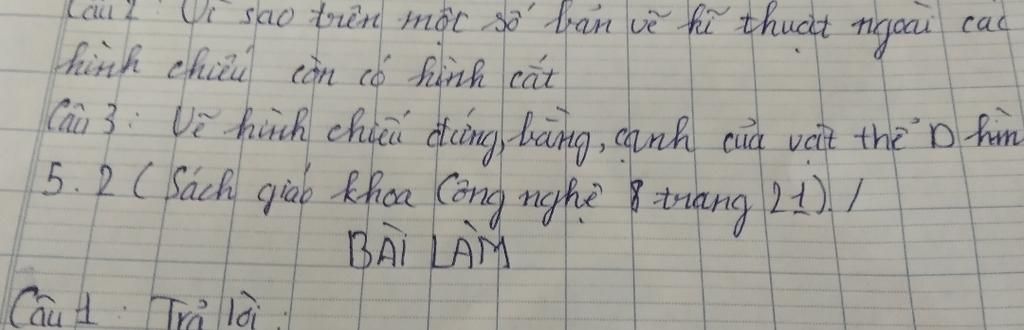 Câu 2: Vì sao trên một số bản vẽ kĩ thuật ngoài các
hình chiếu còn có hình cắt
Câu 3: Vẽ hình chiếu đứng, bằng, cạnh của vật thể D hìn
5.2 (Sách giáo khoa Công nghệ 8 trang 21). /
BÀI LÀM
Câu 1: Trả lời: